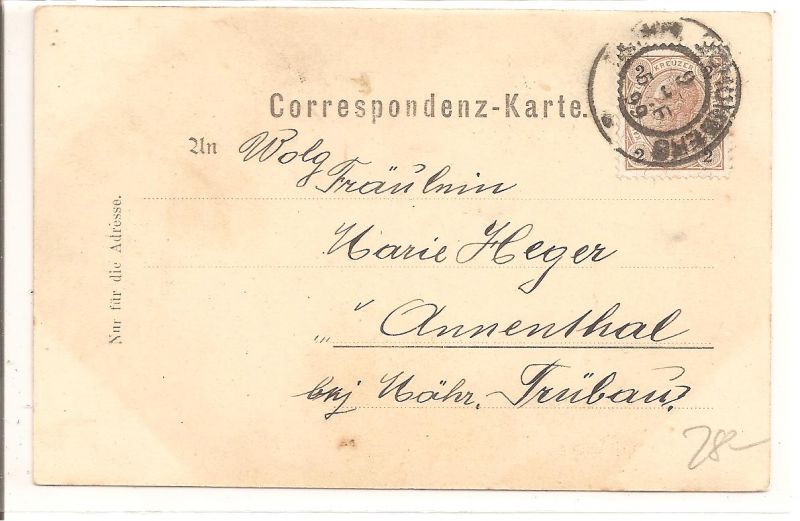 Correspondenz-Karte.
An Wolg
Fräulein
Marie Heger
Annenthal
bej Mähr. Trübau.
Nur für die Adresse.
KREUZER
2 2
2 2
SCHÖNBERG
25 9 99
28-